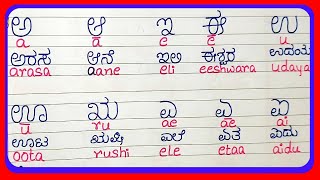 ಅ ಆ ಇ ಈ ಉ
a a e e u
ಅರಸ ಆನೆ ಇಲಿ ಈಶ್ವರ ಉದಯ
arasa aane eli eeshwara udaya
ಊ ಋ ಎ ಏ ಐ
u ru ae ae ai
ಊಟ ಋಷಿ ಎಲೆ ಏತ ಐದು
oota rushi ele etaa aidu